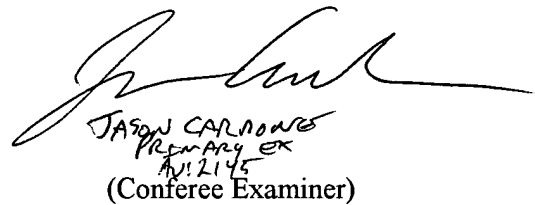 JASON CARDONE
PRIMARY EX
AU: 2145
(Conferee Examiner)